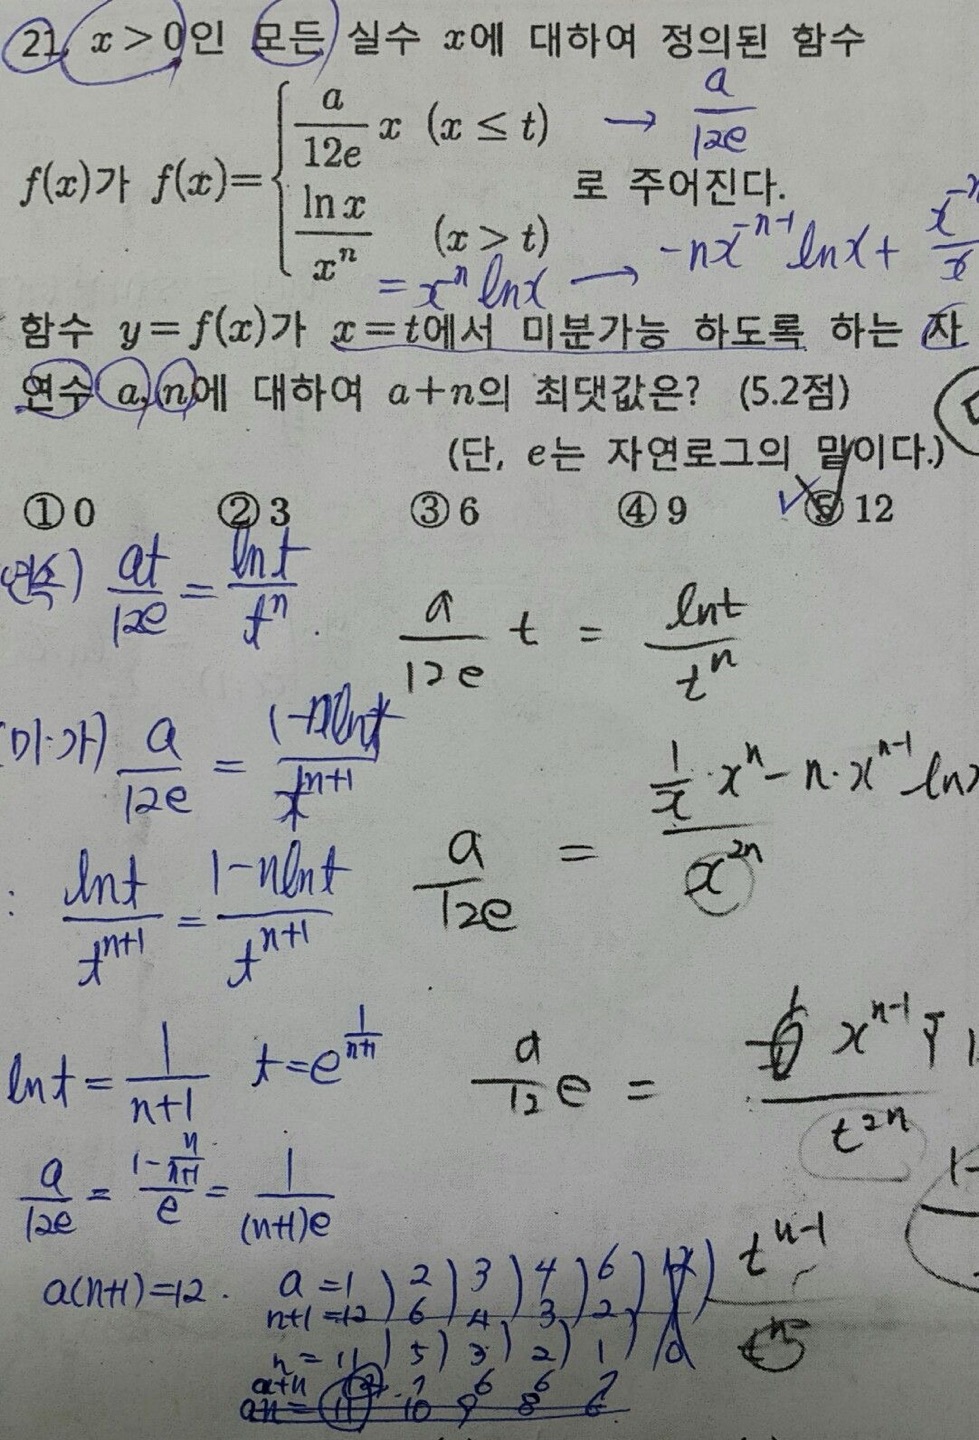 21. x > 0인 모든 실수 x에 대하여 정의된 함수
f(x)가 f(x)= { a/12e x (x ≤ t) → a/12e
ln x / xⁿ (x > t) 로 주어진다.
= x⁻ⁿ ln x → -nx⁻ⁿ⁻¹ ln x +
함수 y=f(x)가 x=t에서 미분가능 하도록 하는 자
연수 a, n에 대하여 a+n의 최댓값은? (5.2점)
(단, e는 자연로그의 밑이다.)
① 0 ② 3 ③ 6 ④ 9 ⑤ 12
연속) at/12e = ln t / tⁿ
a/12e t = ln t / tⁿ
미·가) a/12e = (1-n ln t) / tⁿ⁺¹
a/12e = (1/x · xⁿ - n · xⁿ⁻¹ ln x) / x²ⁿ
ln t / tⁿ⁺¹ = (1-n ln t) / tⁿ⁺¹
ln t = 1/(n+1) t = e^(1/(n+1))
a/12 e = xⁿ⁻¹ / t²ⁿ
a/12e = (1 - n/(n+1)) / e = 1/((n+1)e)
tⁿ⁻¹
a(n+1)=12. a = 1 ) 2 ) 3 ) 4 ) 6 ) 12 )
n+1 = 12 ) 6 ) 4 ) 3 ) 2 )
n = 11 ) 5 ) 3 ) 2 ) 1 ) 0
a+n 12 7 6 6 7
an = 11 10 9 8 6